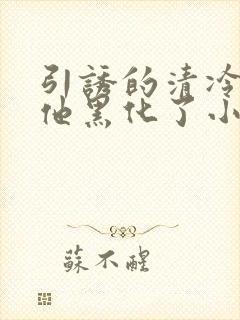 引誘的清冷
他黑化了小
蘇不醒